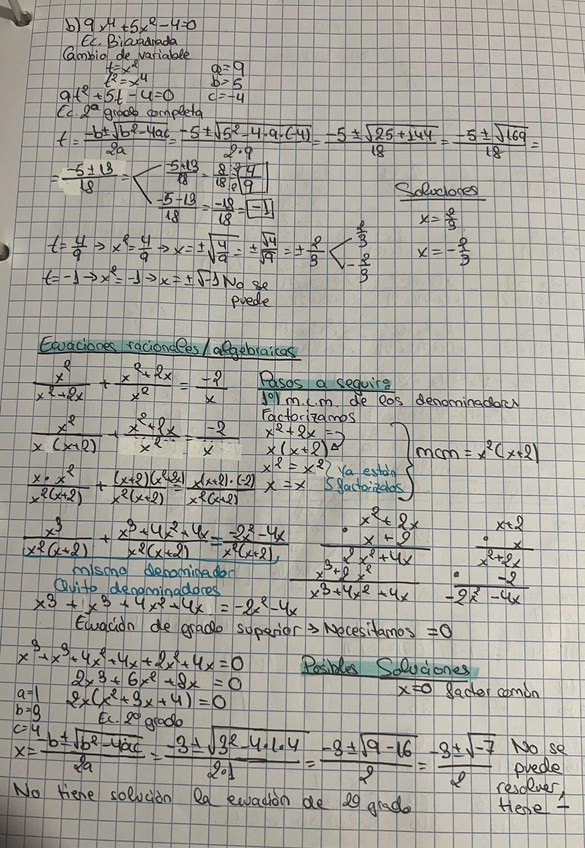 b) 9x⁴+5x²-4=0
Ec. Bicuadrada
Cambio de variable
t=x² a=9
t²=x⁴ b=5
9t²+5t-4=0 c=-4
Ec. 2º grado completa
t = (-b±√(b²-4ac))/2a = (-5±√(5²-4·9·(-4)))/(2·9) = (-5±√(25+144))/18 = (-5±√169)/18 =
= (-5±13)/18 = < (-5+13)/18 = 8/18 = 4/9
(-5-13)/18 = -18/18 = -1
Soluciones
x=2/3
x=-2/3
t=4/9 → x²=4/9 → x=±√(4/9) = ±√4/√9 = ±2/3 < 2/3
-2/3
t=-1 → x²=-1 → x=±√-1 No se
puede
Ecuaciones racionales/algebraicas
x²/(x²+2x) + (x²+2x)/x² = -2/x
x²/(x(x+2)) + (x²+2x)/x² = -2/x
(x·x²)/(x²(x+2)) + ((x+2)(x²+2x))/(x²(x+2)) = (x(x+2)·(-2))/(x²(x+2))
Pasos a seguir:
1º) m.c.m de los denominadores
Factorizamos
x²+2x =
x(x+2)
x² = x² Ya están
x = x factorizados
mcm = x²(x+2)
x³/(x²(x+2)) + (x³+4x²+4x)/(x²(x+2)) = (-2x²-4x)/(x²(x+2))
mismo denominador
Quito denominadores
x²+2x
· x+2
2x²+4x
x³+2x²
x³+4x²+4x
x+2
· x
x²+2x
· -2
-2x²-4x
x³+x³+4x²+4x = -2x²-4x
Ecuación de grado superior → Necesitamos =0
x³+x³+4x²+4x+2x²+4x=0
2x³+6x²+8x=0
2x(x²+3x+4)=0
Posibles Soluciones
x=0 factor común
a=1
b=3 Ec. 2º grado
c=4
x = (-b±√(b²-4ac))/2a = (-3±√(3²-4·1·4))/(2·1) = (-3±√(9-16))/2 = (-3±√-7)/2 No se
puede
resolver,
tiene -
No tiene solución la ecuación de 2º grado